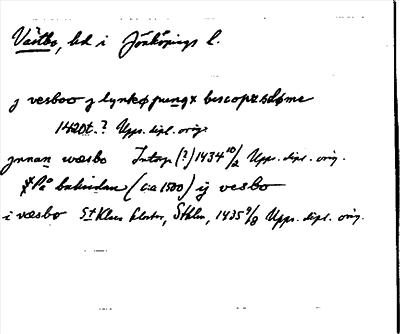 Västbo, hd i Jönköpings l.
j vesboo j lynkøpungx bescopzsdøme
1420t.? Upps. dipl. orig.
jnnan wæsbo Intap (?) 1434 10/2 Upps. dipl. orig.
x På baksidan (ca 1500) ij vesbo
i væsbo St Klara kloster, Sthlm, 1435 9/8 Upps. dipl. orig.